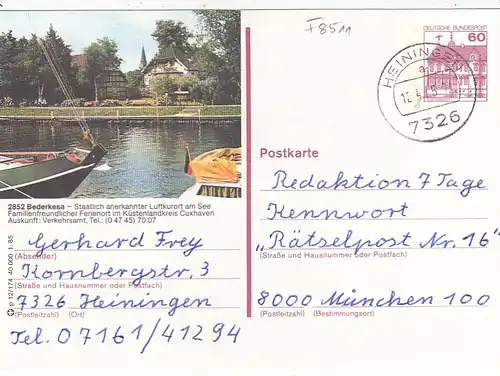 F8511
DEUTSCHE BUNDESPOST
60
HEININGEN
7326
2852 Bederkesa – Staatlich anerkannter Luftkurort am See
Familienfreundlicher Ferienort im Küstenlandkreis Cuxhaven
Auskunft: Verkehrsamt, Tel.: (0 47 45) 70 07
Gerhard Frey
(Absender)
Kornbergstr. 3
(Straße und Hausnummer oder Postfach)
7326 Heiningen
(Postleitzahl) (Ort)
Tel. 07161/41294
p 12/174 40 000 1. 85
Postkarte
Redaktion 7 Tage
Kennwort
„Rätselpost Nr. 16"
(Straße und Hausnummer oder Postfach)
8000 München 100
(Postleitzahl) (Bestimmungsort)